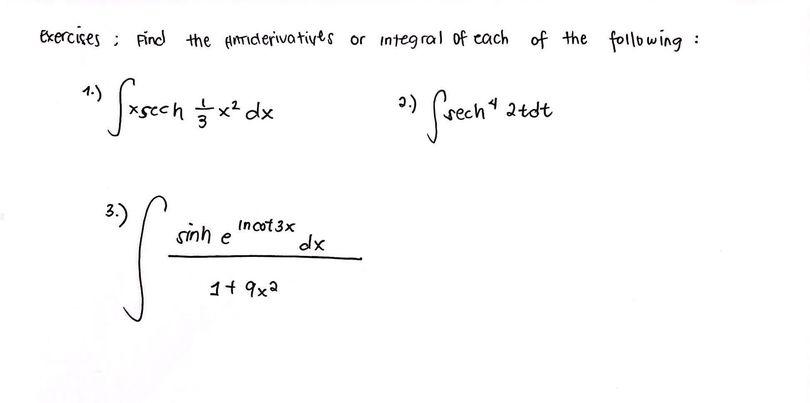 Exercises ; Find the Antiderivatives or integral of each of the following :
1.) ∫xsech 1/3 x² dx 2.) ∫sech⁴ 2tdt
3.) ∫ sinh e^(ln cot 3x) dx
1+ 9x²